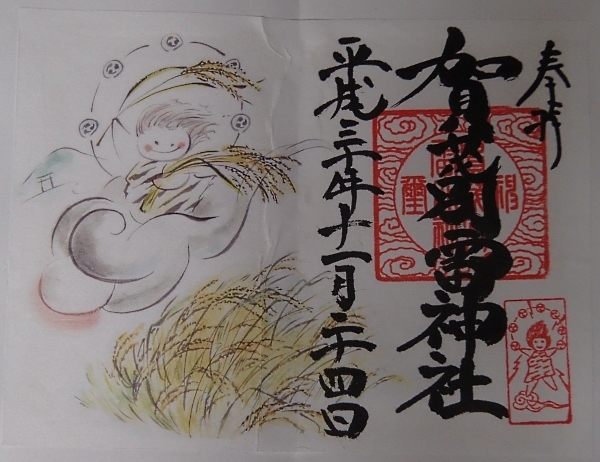 奉拝
賀茂別雷神社
平成三十年十一月二十四日